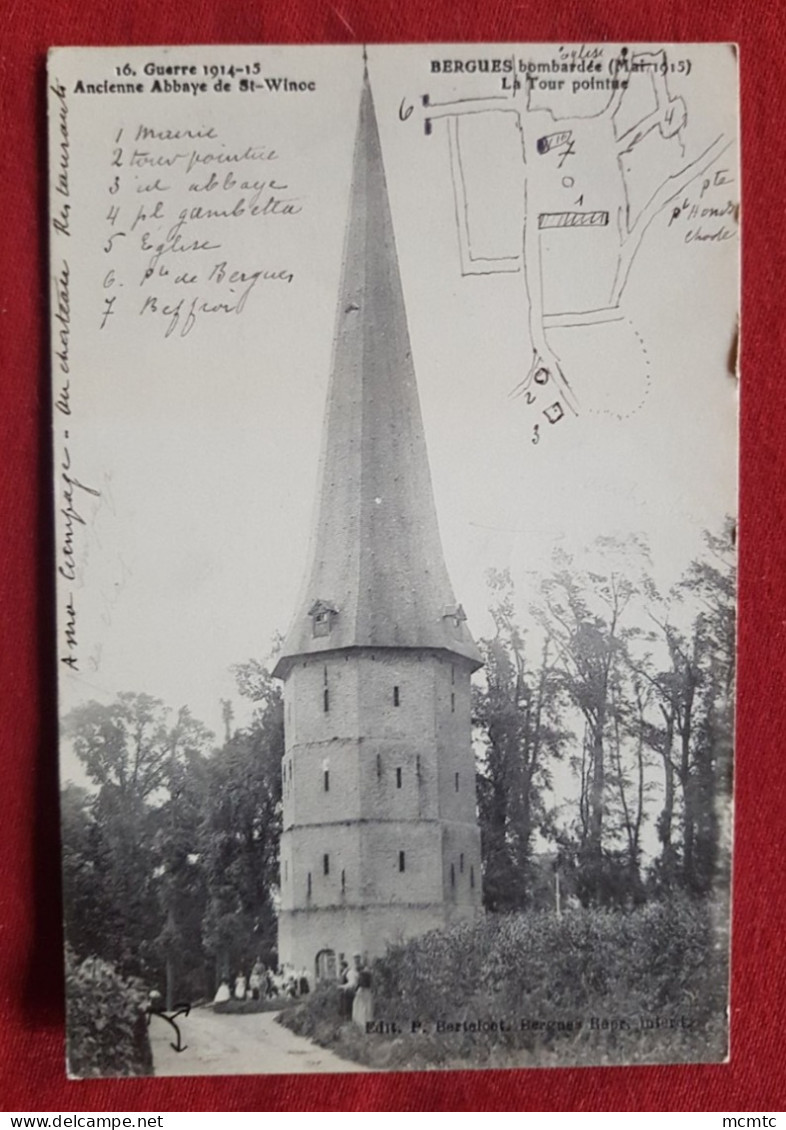 16. Guerre 1914-15
Ancienne Abbaye de St-Winoc
BERGUES bombardée (Mai 1915)
La Tour pointue
1 Mairie
2 tour pointue
3 id abbaye
4 pl gambetta
5 Eglise
6. pte de Bergues
7 Beffroi
Eglise
6
4
7
1
pte
Honds
chode
2
3
au chateau Restaurants
Edit. P. Berteloot, Bergues Repr. interd.
mcmtc
delcampe.net